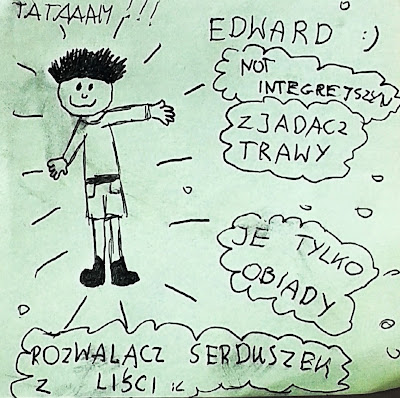 TATAAAM !!!
EDWARD :)
NOT
INTEGREJSZYN
ZJADACZ
TRAWY
JE TYLKO
OBIADY
ROZWALACZ SERDUSZEK
Z LIŚCI :c